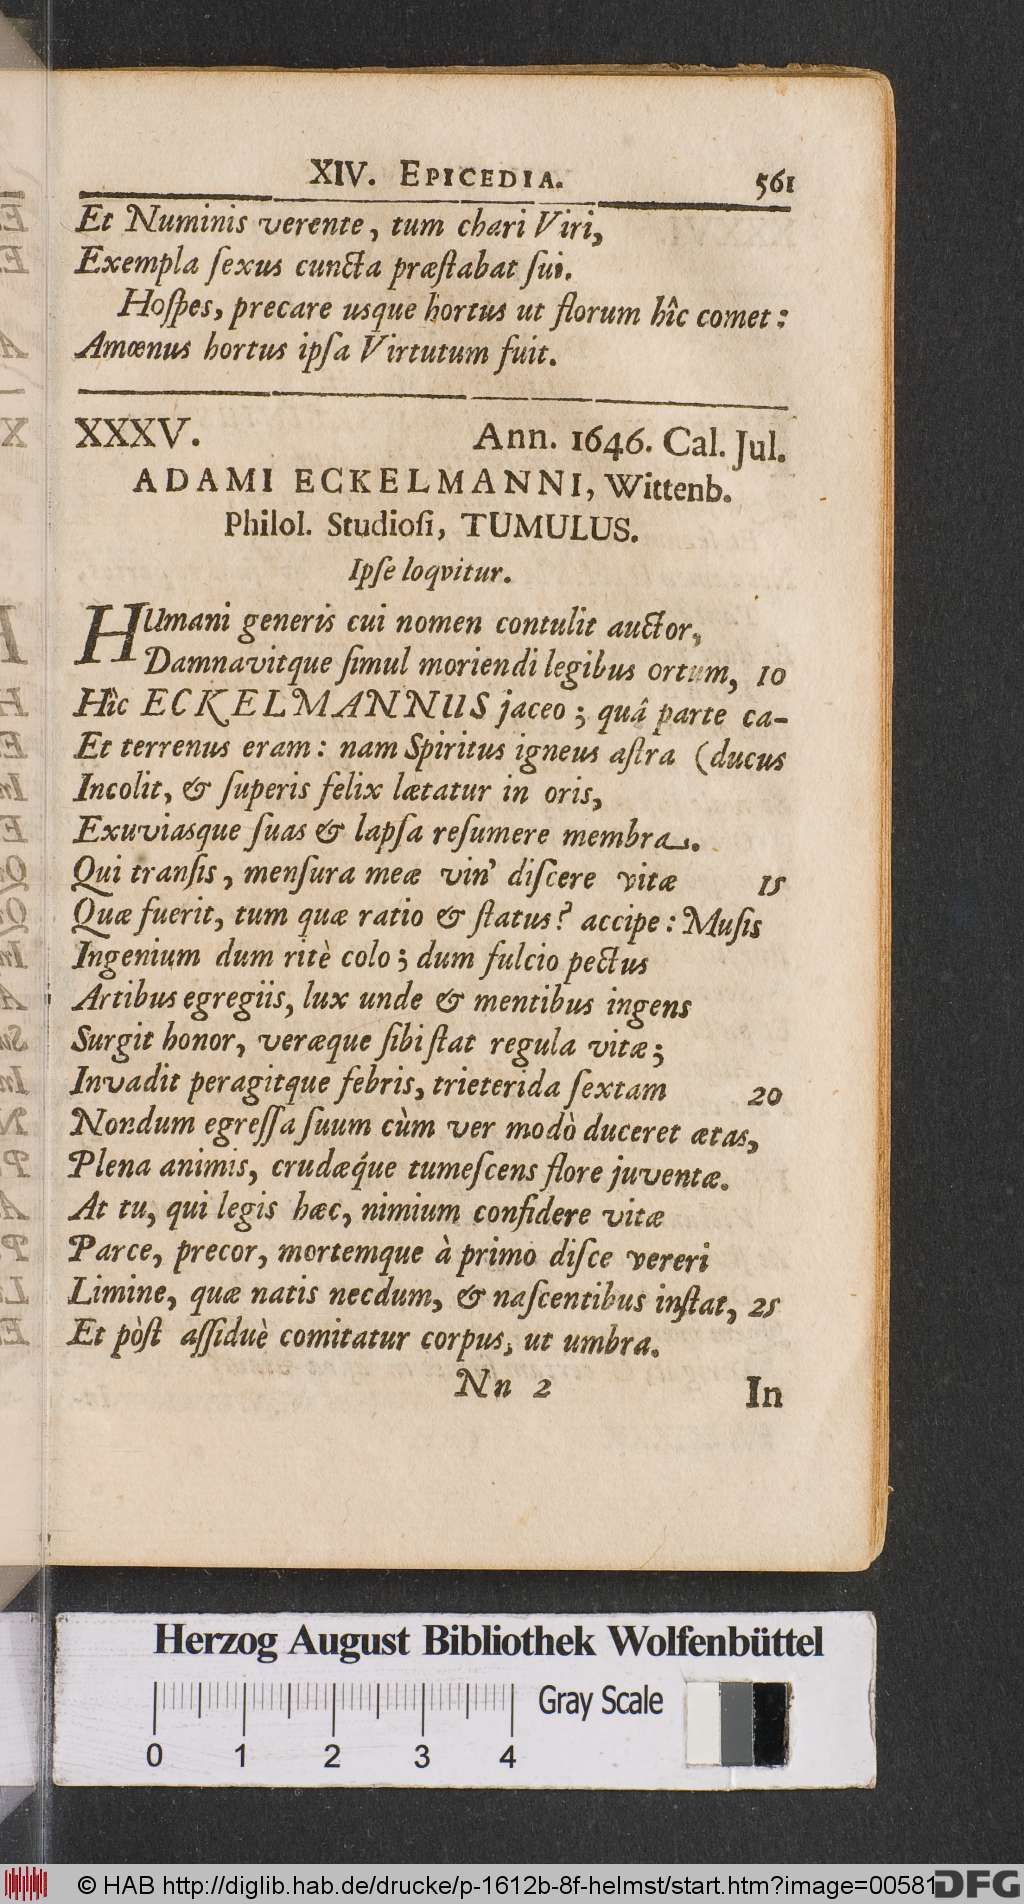 XIV. EPICEDIA. 561
Et Numinis verente, tum chari Viri,
Exempla ſexus cuncta præſtabat ſui.
Hoſpes, precare usque hortus ut florum hîc comet:
Amœnus hortus ipſa Virtutum fuit.
XXXV. Ann. 1646. Cal. Jul.
ADAMI ECKELMANNI, Wittenb.
Philol. Studioſi, TUMULUS.
Ipſe loqvitur.
HUmani generis cui nomen contulit auctor,
Damnavitque ſimul moriendi legibus ortum, 10
Hîc ECKELMANNUS jaceo; quâ parte ca-
Et terrenus eram: nam Spiritus igneus aſtra (ducus
Incolit, & ſuperis felix lætatur in oris,
Exuviasque ſuas & lapſa reſumere membra.
Qui tranſis, menſura meæ vin' diſcere vitæ 15
Quæ fuerit, tum quæ ratio & ſtatus? accipe: Muſis
Ingenium dum ritè colo; dum fulcio pectus
Artibus egregiis, lux unde & mentibus ingens
Surgit honor, veræque ſibi ſtat regula vitæ;
Invadit peragitque febris, trieterida ſextam 20
Nondum egreſſa ſuum cùm ver modò duceret ætas,
Plena animis, crudæq́ue tumeſcens flore juventæ.
At tu, qui legis hæc, nimium confidere vitæ
Parce, precor, mortemque à primo diſce vereri
Limine, quæ natis necdum, & naſcentibus inſtat, 25
Et pòſt aſſiduè comitatur corpus, ut umbra.
Nn 2 In
Herzog August Bibliothek Wolfenbüttel
Gray Scale
0 1 2 3 4
© HAB http://diglib.hab.de/drucke/p-1612b-8f-helmst/start.htm?image=00581
DFG